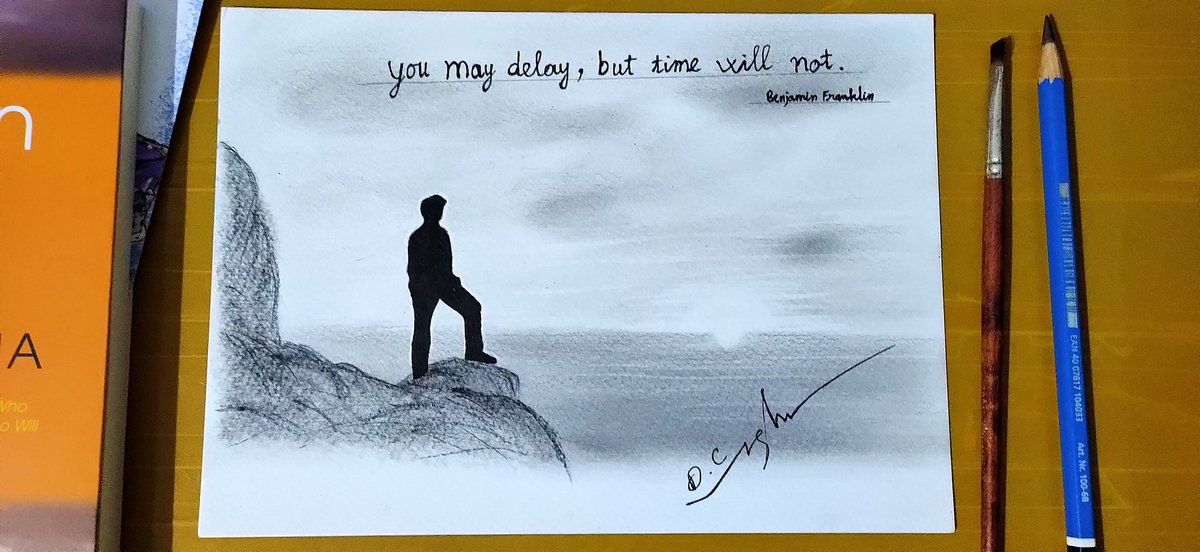 you may delay, but time will not.
Benjamin Franklin
n
IA
Who
o Will
D.C
EAN 40 07817 104033
Art. Nr. 100-6B